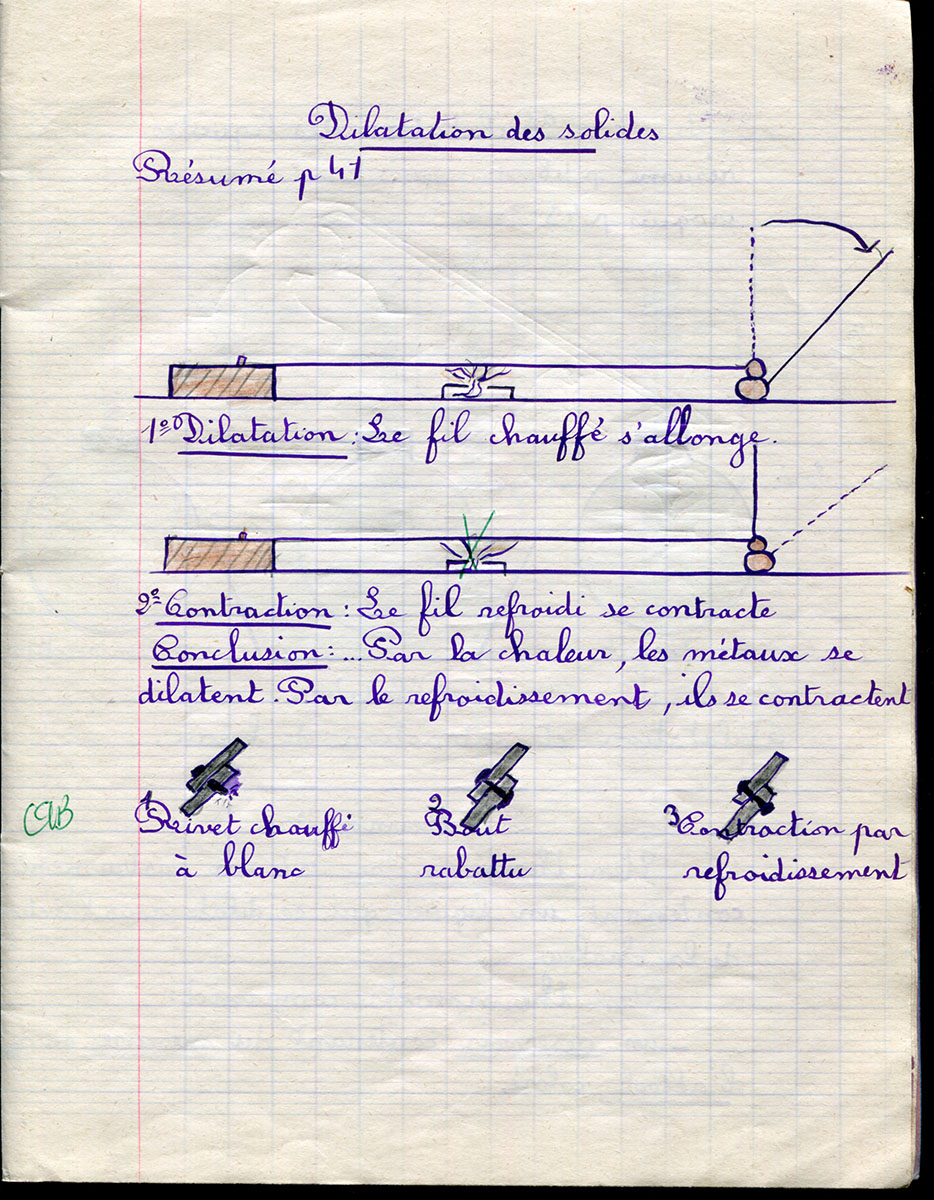 Dilatation des solides
Résumé p 41
1º Dilatation : Le fil chauffé s'allonge.
2º Contraction : Le fil refroidi se contracte
Conclusion : ... Par la chaleur, les métaux se
dilatent. Par le refroidissement, ils se contractent
1 Rivet chauffé
à blanc
2 Bout
rabattu
3 Contraction par
refroidissement